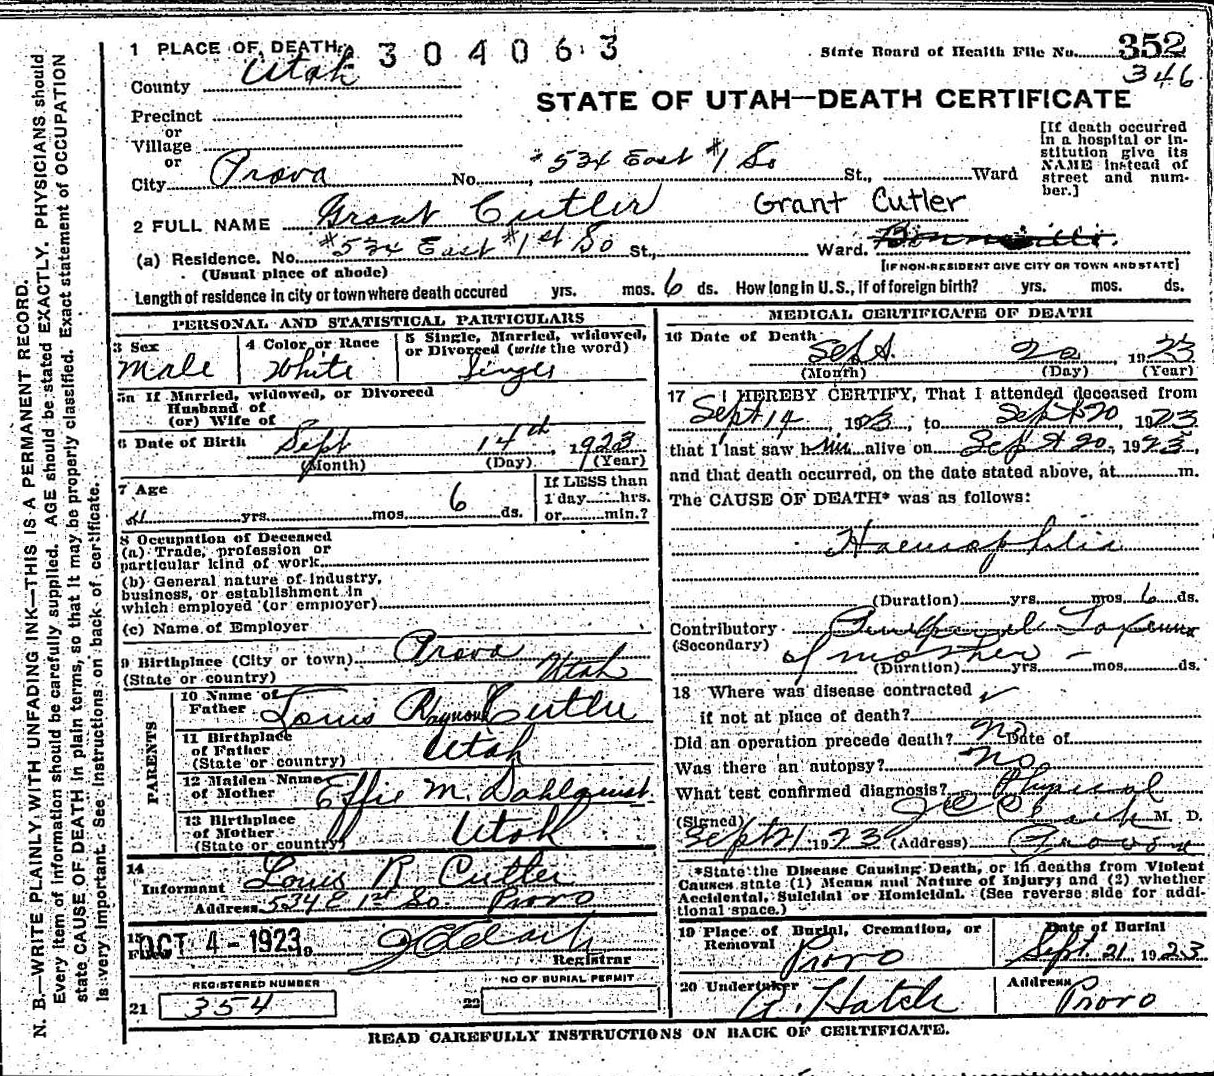 N. B.—WRITE PLAINLY WITH UNFADING INK—THIS IS A PERMANENT RECORD.
Every item of information should be carefully supplied. AGE should be stated EXACTLY. PHYSICIANS should
state CAUSE OF DEATH in plain terms, so that it may be properly classified. Exact statement of OCCUPATION
is very important. See instructions on back of certificate.
1 PLACE OF DEATH 2304063
State Board of Health File No. 352
346
County Utah
STATE OF UTAH—DEATH CERTIFICATE
Precinct
or
Village
or
City Provo No. #534 East #1 So St., Ward
[If death occurred
in a hospital or in-
stitution give its
NAME instead of
street and num-
ber.]
2 FULL NAME Grant Cutler Grant Cutler
(a) Residence. No. #534 East #1st So St., Ward.
(Usual place of abode) [IF NON-RESIDENT GIVE CITY OR TOWN AND STATE]
Length of residence in city or town where death occured yrs. mos. 6 ds. How long in U.S., if of foreign birth? yrs. mos. ds.
PERSONAL AND STATISTICAL PARTICULARS
3 Sex Male
4 Color or Race White
5 Single, Married, widowed,
or Divorced (write the word)
Single
5a If Married, widowed, or Divorced
Husband of
(or) Wife of
6 Date of Birth Sept 14th, 1923
(Month) (Day) (Year)
7 Age yrs. mos. 6 ds.
If LESS than
1 day hrs.
or min.?
8 Occupation of Deceased
(a) Trade, profession or
particular kind of work
(b) General nature of industry,
business, or establishment in
which employed (or employer)
(c) Name of Employer
9 Birthplace (City or town) Provo
(State or country) Utah
PARENTS
10 Name of
Father Louis Raymond Cutler
11 Birthplace
of Father Utah
(State or country)
12 Maiden Name
of Mother Effie M. Dahlquist
13 Birthplace
of Mother Utah
(State or country)
14
Informant Louis R Cutler
Address 534 E 1st So Provo
15
Filed OCT 4 - 1923
Registrar
REGISTERED NUMBER
21 354
NO OF BURIAL PERMIT
22
MEDICAL CERTIFICATE OF DEATH
16 Date of Death Sept. 20, 1923
(Month) (Day) (Year)
17 I HEREBY CERTIFY, That I attended deceased from
Sept 14, 1923, to Sept 20, 1923
that I last saw him alive on Sept 20, 1923
and that death occurred, on the date stated above, at m.
The CAUSE OF DEATH* was as follows:
Haemophilia
(Duration) yrs. mos. 6 ds.
Contributory
(Secondary) of mother -
(Duration) yrs. mos. ds.
18 Where was disease contracted
if not at place of death?
Did an operation precede death? No Date of
Was there an autopsy? No
What test confirmed diagnosis? Physical
(Signed) M. D.
Sept 21 1923 (Address) Provo
*State the Disease Causing Death, or in deaths from Violent
Causes state (1) Means and Nature of Injury; and (2) whether
Accidental, Suicidal or Homicidal. (See reverse side for addi-
tional space.)
19 Place of Burial, Cremation, or
Removal Provo
Date of Burial
Sept. 21 1923
20 Undertaker
A. Hatch
Address
Provo
READ CAREFULLY INSTRUCTIONS ON BACK OF CERTIFICATE.